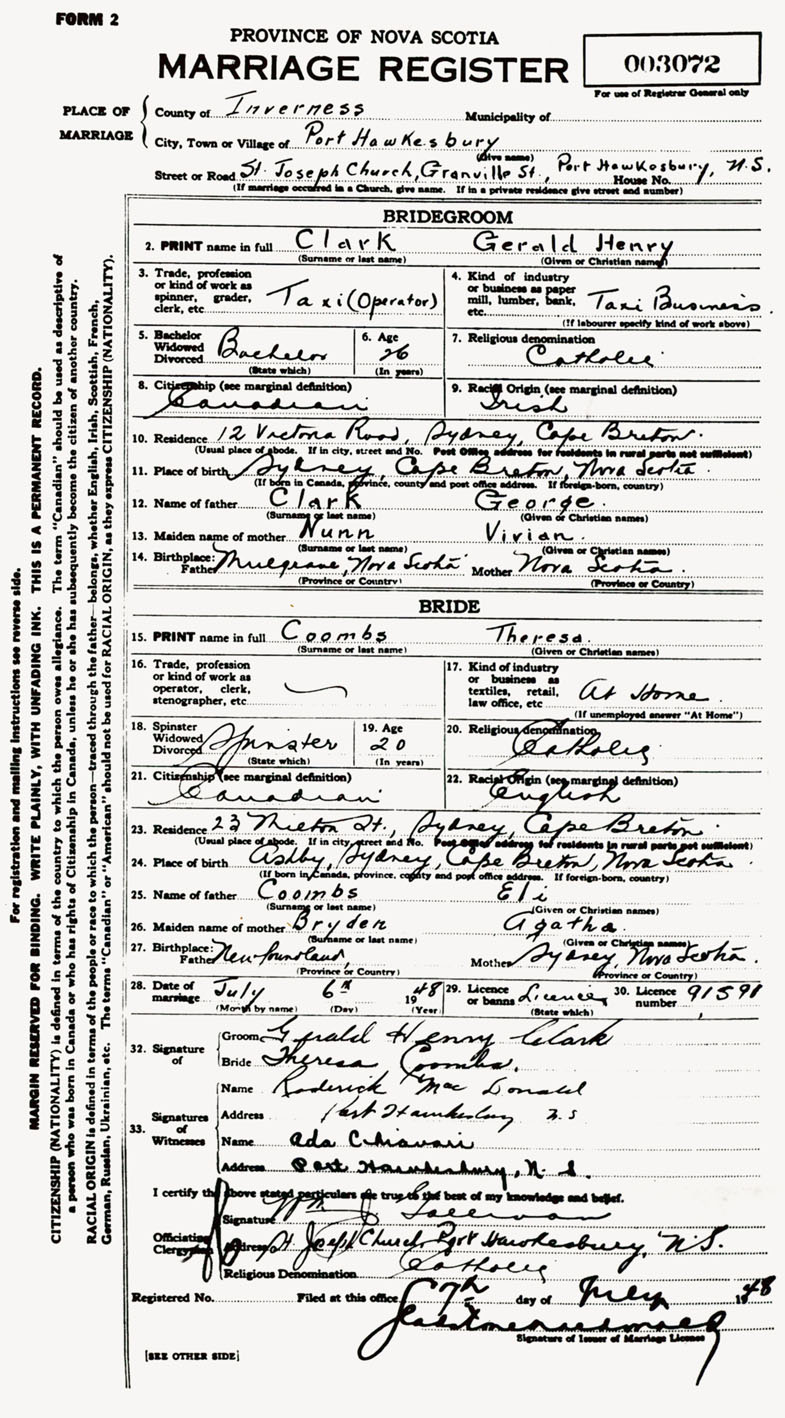 FORM 2
PROVINCE OF NOVA SCOTIA
MARRIAGE REGISTER
003072
For use of Registrar General only
PLACE OF MARRIAGE
County of Inverness Municipality of
City, Town or Village of Port Hawkesbury
(Give name)
Street or Road St. Joseph Church, Granville St., Port Hawkesbury, N.S.
House No.
(If marriage occurred in a Church, give name. If in a private residence give street and number)
BRIDEGROOM
2. PRINT name in full Clark Gerald Henry
(Surname or last name) (Given or Christian name)
3. Trade, profession or kind of work as spinner, grader, clerk, etc. Taxi (Operator)
4. Kind of industry or business as paper mill, lumber, bank, etc. Taxi Business
(If labourer specify kind of work above)
5. Bachelor Widowed Divorced Bachelor
(State which)
6. Age 26
(In years)
7. Religious denomination Catholic
8. Citizenship (see marginal definition) Canadian
9. Racial Origin (see marginal definition) Irish
10. Residence 12 Victoria Road, Sydney, Cape Breton.
(Usual place of abode. If in city, street and No. Post Office address for residents in rural parts not sufficient)
11. Place of birth Sydney, Cape Breton, Nova Scotia.
(If born in Canada, province, county and post office address. If foreign-born, country)
12. Name of father Clark George.
(Surname or last name) (Given or Christian names)
13. Maiden name of mother Nunn Vivian.
(Surname or last name) (Given or Christian names)
14. Birthplace: Father Mulgrave, Nova Scotia Mother Nova Scotia.
(Province or Country) (Province or Country)
BRIDE
15. PRINT name in full Coombs Theresa.
(Surname or last name) (Given or Christian names)
16. Trade, profession or kind of work as operator, clerk, stenographer, etc.
17. Kind of industry or business as textiles, retail, law office, etc. At Home
(If unemployed answer "At Home")
18. Spinster Widowed Divorced Spinster
(State which)
19. Age 20
(In years)
20. Religious denomination Catholic
21. Citizenship (see marginal definition) Canadian
22. Racial Origin (see marginal definition) English
23. Residence 23 St., Sydney, Cape Breton.
(Usual place of abode. If in city, street and No. Post Office address for residents in rural parts not sufficient)
24. Place of birth Ashby, Sydney, Cape Breton, Nova Scotia.
(If born in Canada, province, county and post office address. If foreign-born, country)
25. Name of father Coombs Eli
(Surname or last name) (Given or Christian names)
26. Maiden name of mother Bryden Agatha.
(Surname or last name) (Given or Christian names)
27. Birthplace: Father Newfoundland, Mother Sydney, Nova Scotia.
(Province or Country) (Province or Country)
28. Date of marriage July 6th 1948
(Month by name) (Day) (Year)
29. Licence or banns Licence
(State which)
30. Licence number 91591
32. Signature of
Groom Gerald Henry Clark
Bride Theresa Coombs.
33. Signatures of Witnesses
Name Roderick MacDonald
Address Port Hawkesbury N.S
Name Ada Chiavari
Address Port Hawkesbury, N.S.
I certify the above stated particulars are true to the best of my knowledge and belief.
Officiating Clergyman
Signature
Address St. Joseph Church, Port Hawkesbury, N.S.
Religious Denomination Catholic
Registered No. Filed at this office 7th day of July 1948
Signature of Issuer of Marriage Licenses
[SEE OTHER SIDE]
For registration and mailing instructions see reverse side.
MARGIN RESERVED FOR BINDING. WRITE PLAINLY, WITH UNFADING INK. THIS IS A PERMANENT RECORD.
CITIZENSHIP (NATIONALITY) is defined in terms of the country to which the person owes allegiance. The term "Canadian" should be used as descriptive of
a person who was born in Canada or who has rights of Citizenship in Canada, unless he or she has subsequently become the citizen of another country.
RACIAL ORIGIN is defined in terms of the people or race to which the person—traced through the father—belongs, whether English, Irish, Scottish, French,
German, Russian, Ukrainian, etc. The terms "Canadian" or "American" should not be used for RACIAL ORIGIN, as they express CITIZENSHIP (NATIONALITY).